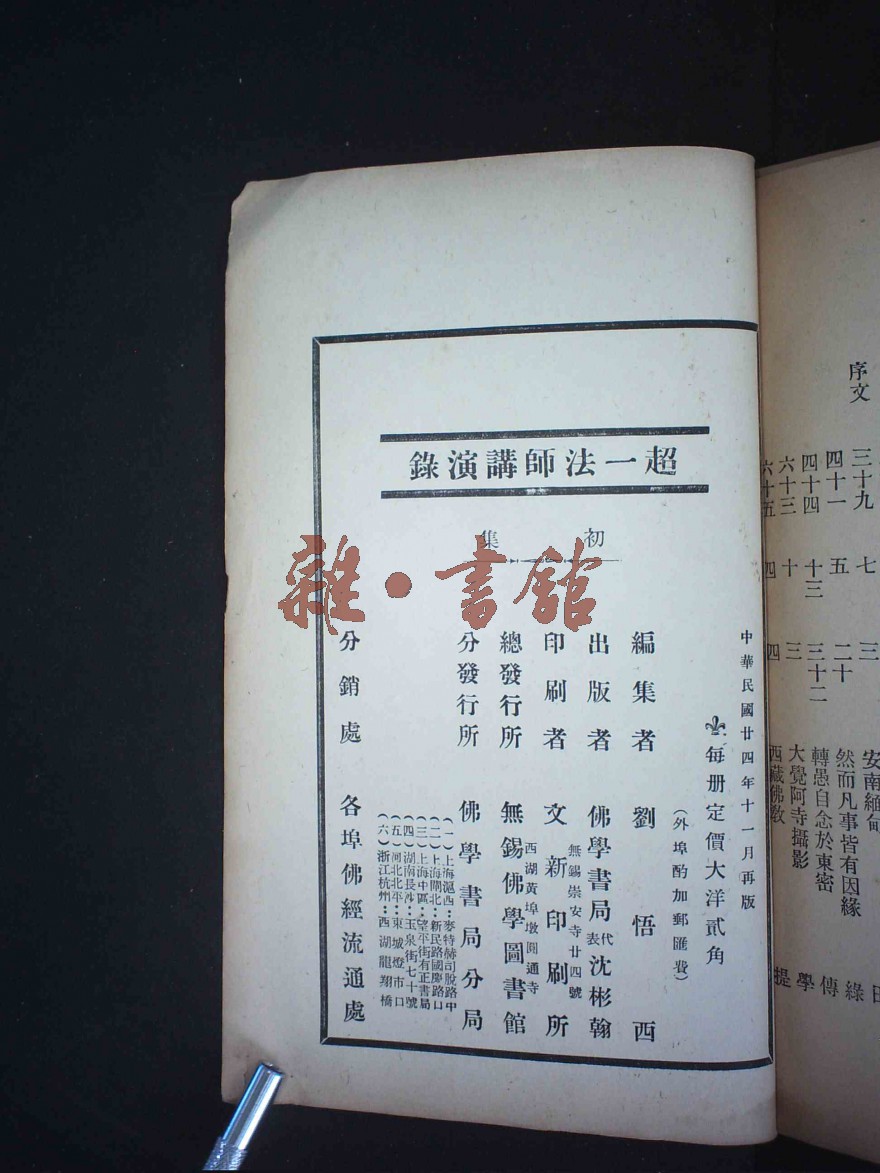 超一法師講演錄
初集
中華民國廿四年十一月再版
每册定價大洋貳角
(外埠酌加郵匯費)
編集者 劉悟西
出版者 佛學書局代表沈彬翰
無錫崇安寺廿四號
印刷者 文新印刷所
西湖黃埠墩圓通寺
總發行所 無錫佛學圖書館
分發行所 佛學書局分局
(一)上海滬西:麥特赫司脫路中
(二)上海閘北:新民路國慶路口
(三)上海中區:望平街有正書局
(四)湖南長沙:玉泉街七十號
(五)河北北平:東城燈市口
(六)浙江杭州:西湖龍翔橋
分銷處 各埠佛經流通處
雜·書館
序文
三十九 七 三 安南緬甸
四十一 五 二十 然而凡事皆有因緣 緣
四十四 十三 三十二 轉愚自念於東密 傳
六十三 十 三 大覺阿寺攝影 學
六十五 四 四 西藏佛教 提